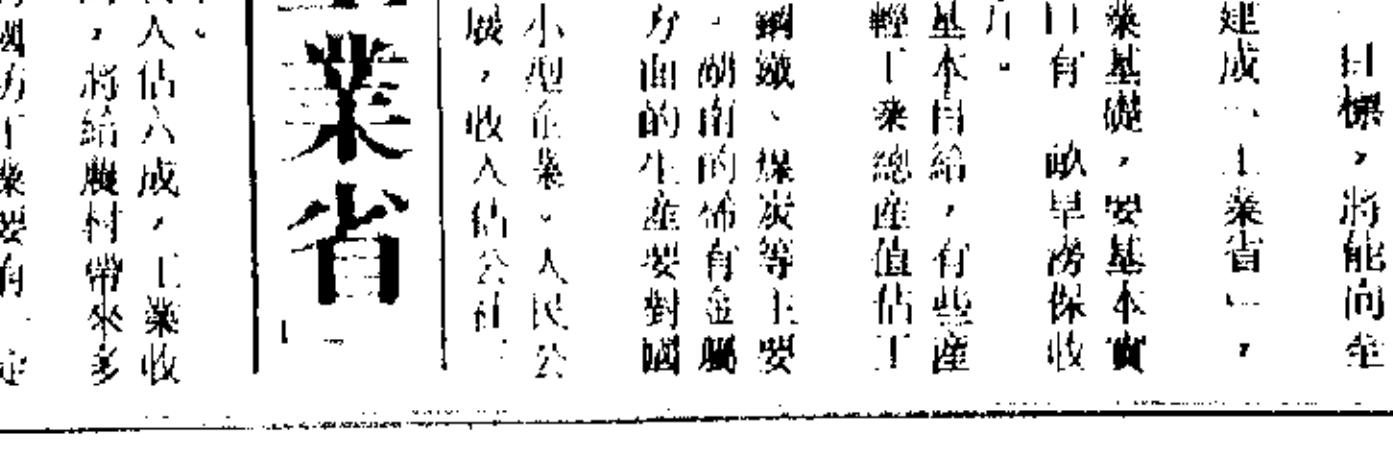 目標，將能向全
建成「工業省」，
業基礎，要基本實
有 畝旱澇保收
方。
基本自給，有些產
輕工業總產值佔工
鋼鐵、煤炭等主要
。湖南的稀有金屬
方面的生產要對國
小型企業。人民公
展，收入佔公社
業省
入佔六成，工業收
，將給農村帶來多
國防工業要有一定